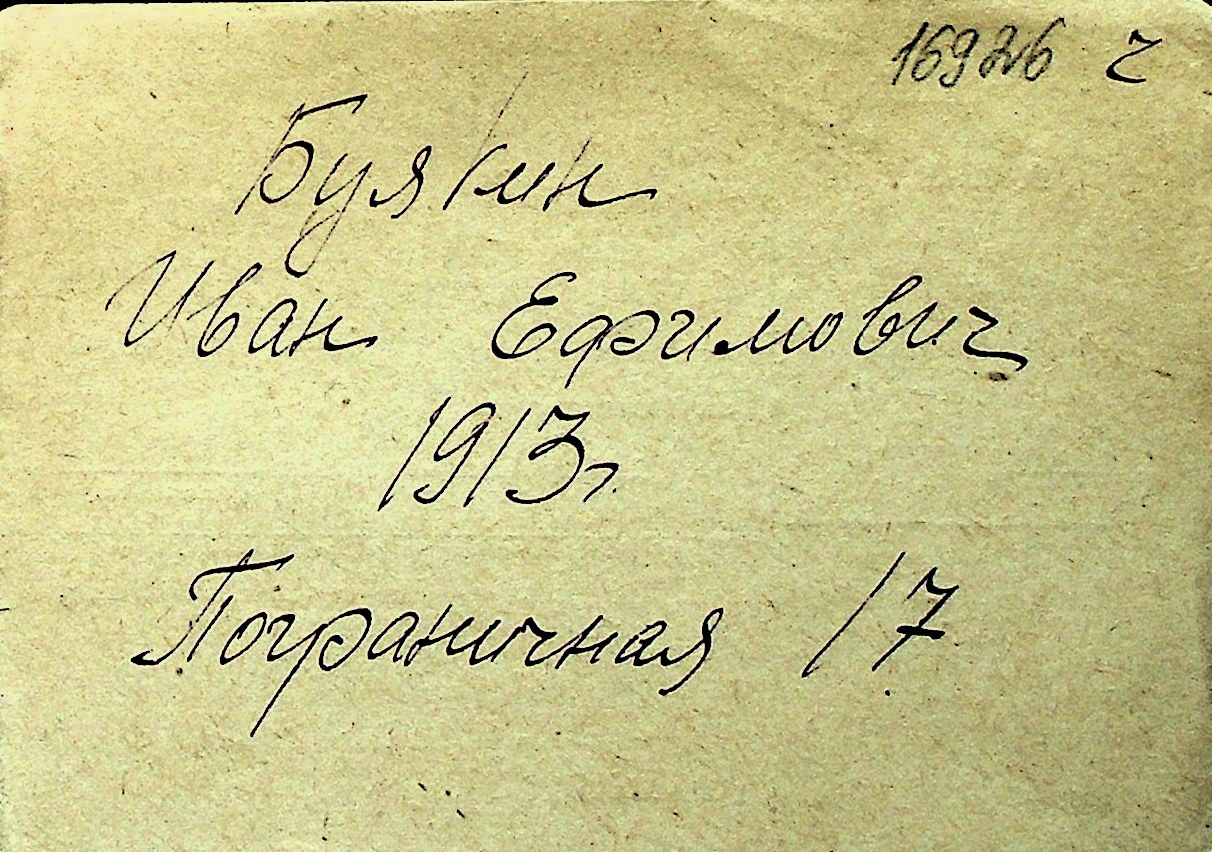 16926 ч
Буякин
Иван Ефимович
1913г.
Пограничная 17